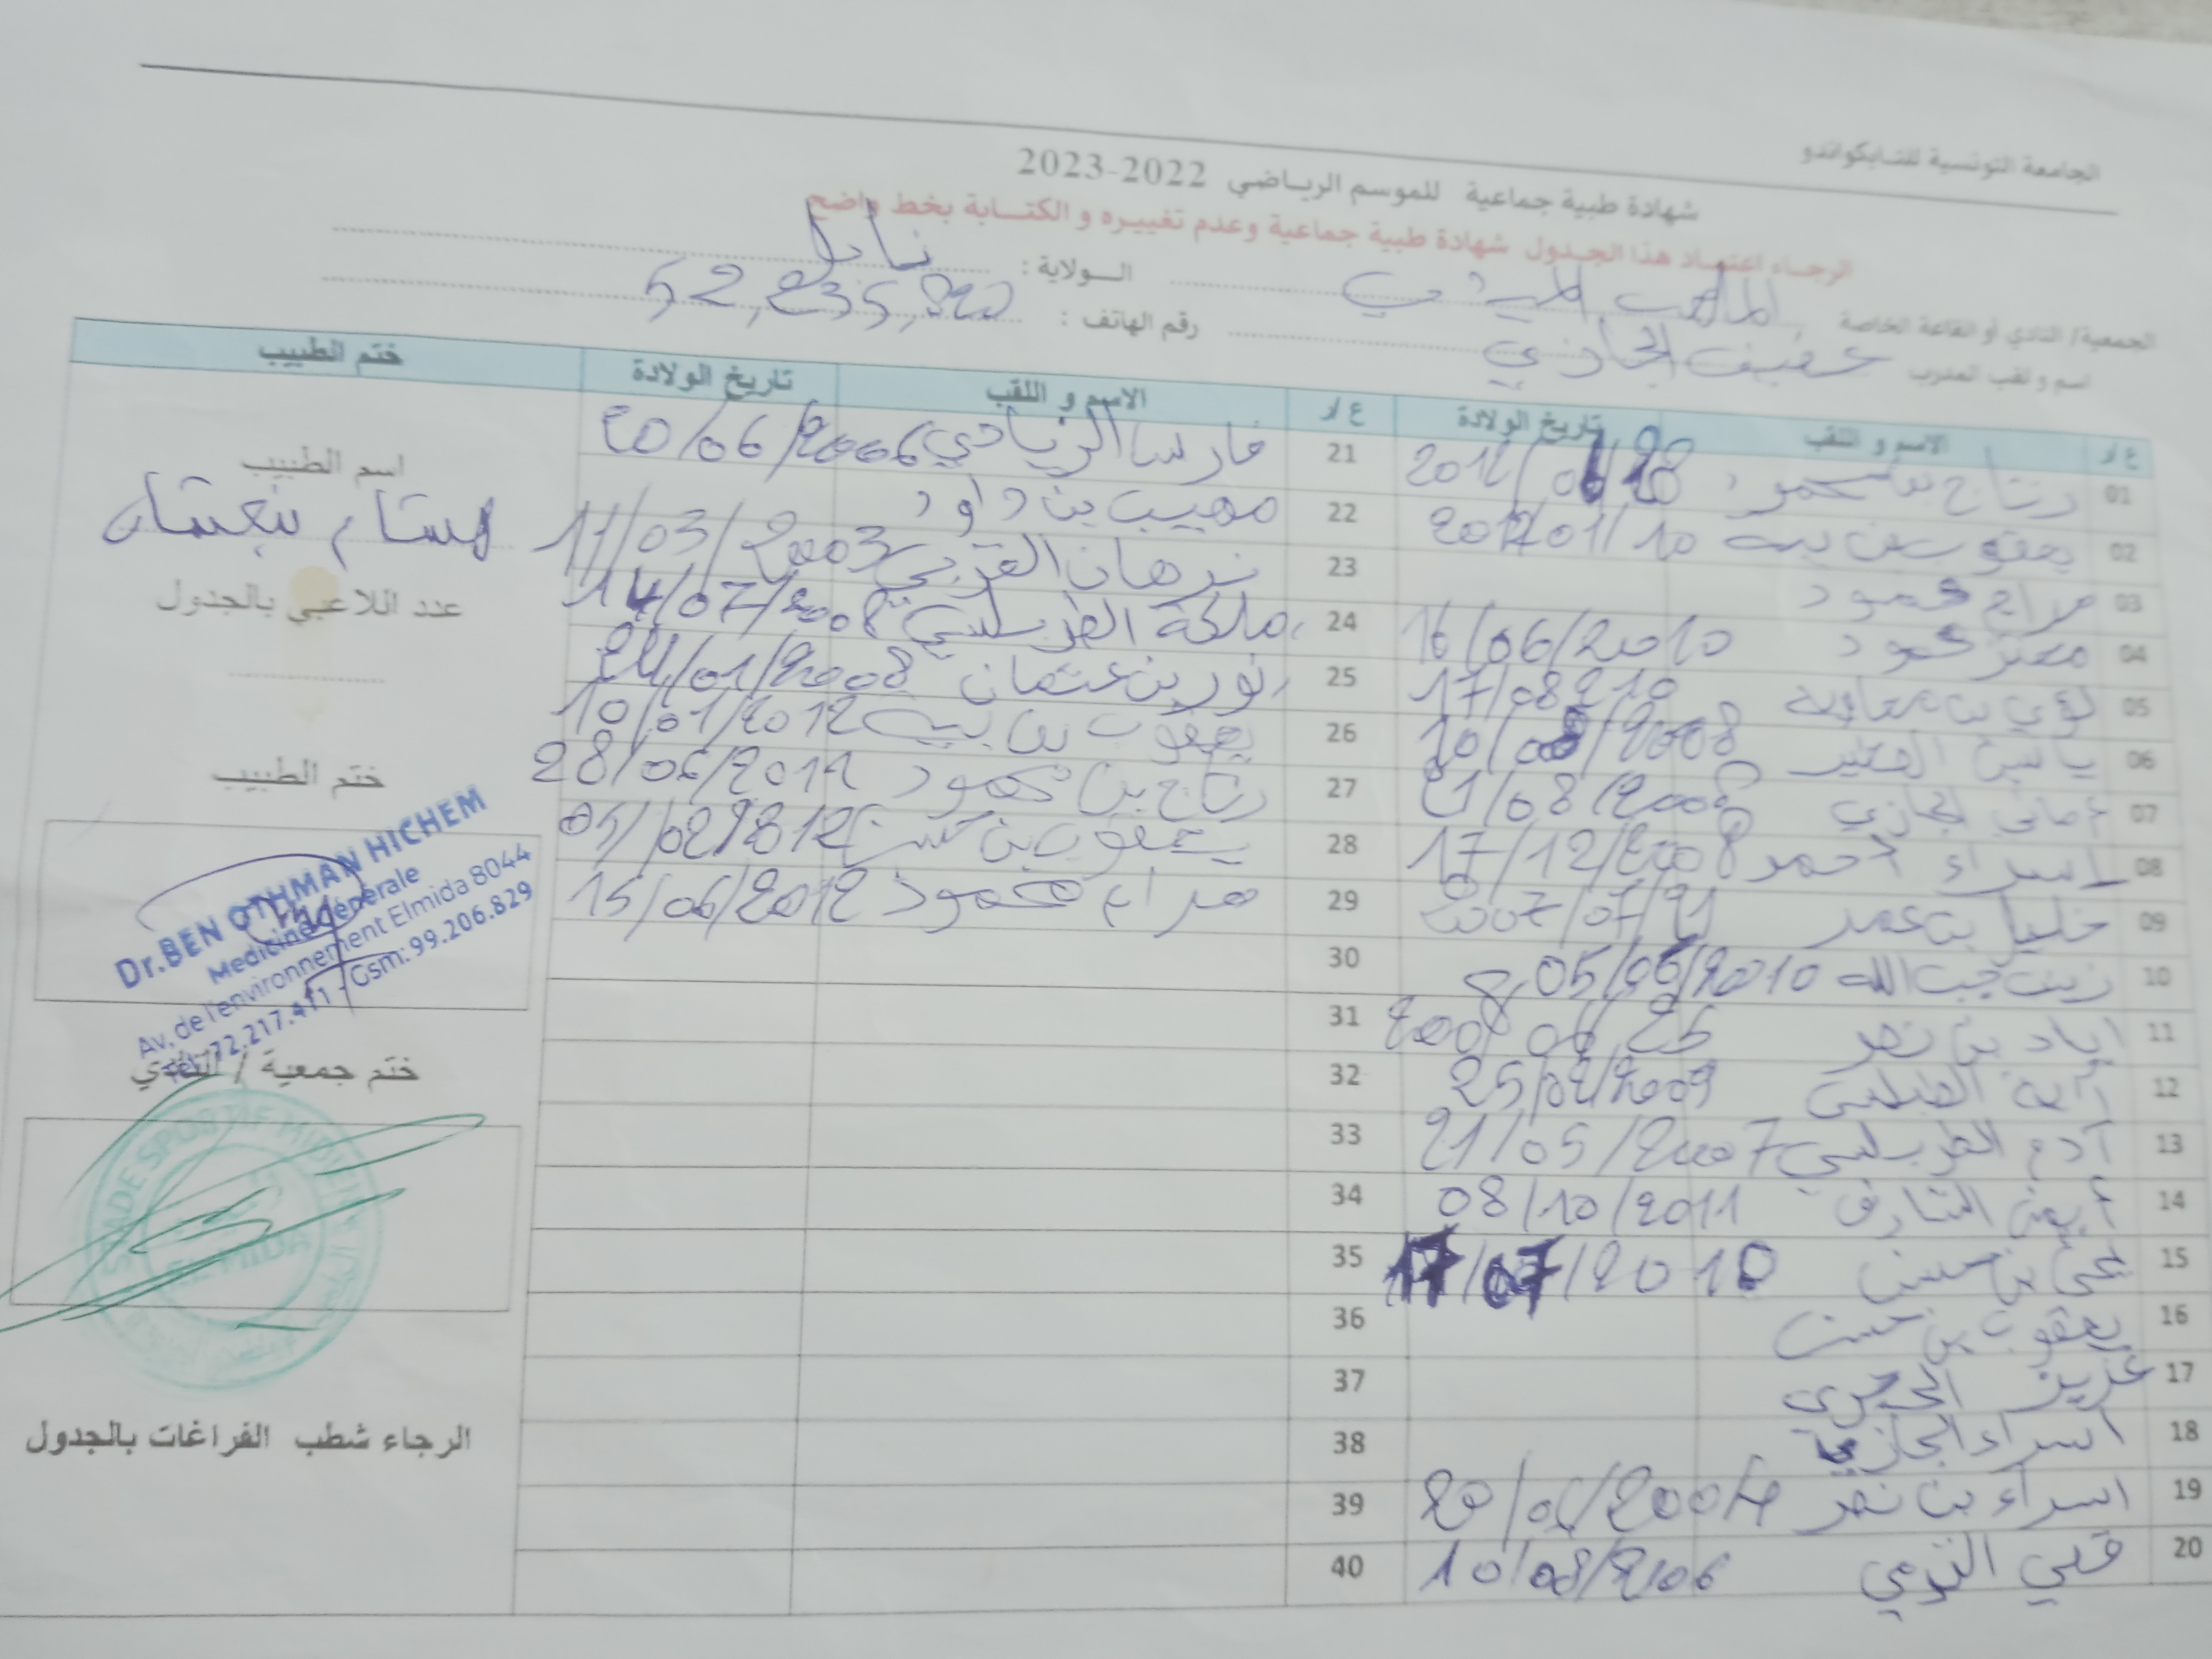 الجامعة التونسية للتايكواندو
شهادة طبية جماعية للموسم الرياضي 2022-2023
الرجاء اعتماد هذا الجدول شهادة طبية جماعية وعدم تغييره و الكتابة بخط واضح
الجمعية/ النادي أو القاعة الخاصة الملعب الميدي الولاية : نابل
اسم و لقب المدرب عفيف الحجازي رقم الهاتف : 52,235,820
ع/ر الاسم و اللقب تاريخ الولادة ع/ر الاسم و اللقب تاريخ الولادة ختم الطبيب
01 رتاج بن محمود 21 فارس الزيادي 20/06/2006
02 يعقوب بن بية 2012/01/10 22 مهيب بن داود
03 مرام محمود 23 نرهان القربي 11/03/2003
04 معتز محمود 16/06/2010 24 ملكة الطرابلسي 14/07/2008
05 لؤي بن معاوية 25 نور بن عثمان 24/01/2008
06 ياسين 26 يعقوب بن بية 10/01/2012
07 أماني الحجازي 21/08/2008 27 رتاج بن محمود 28/06/2012
08 إسراء أحمد 17/12/2008 28 يعقوب بن حسن
09 خليل بن عمر 2007/07/21 29 مرام محمود 15/06/2012
10 زينب جب الله 05/06/2010 30
11 اياد بن نصر 2008 06 25 31
12 آية 25/02/2009 32
13 آدم الطرابلسي 21/05/2007 33
14 أيمن الشارف 08/10/2011 34
15 يحي بن حسن 17/07/2010 35
16 يعقوب بن حسن 36
17 عزيز 37
18 اسراء الحجازي 38
19 اسراء بن نصر 39
20 قصي 40
اسم الطبيب
هشام بنعثمان
عدد اللاعبي بالجدول
ختم الطبيب
Dr.BEN OTHMAN HICHEM
Medicine Générale
Av. de l'environnement Elmida 8044
Tél: 72.217.411 - Gsm: 99.206.829
ختم جمعية / النادي
STADE SPORTIF MIDIEN
EL MIDA
الرجاء شطب الفراغات بالجدول